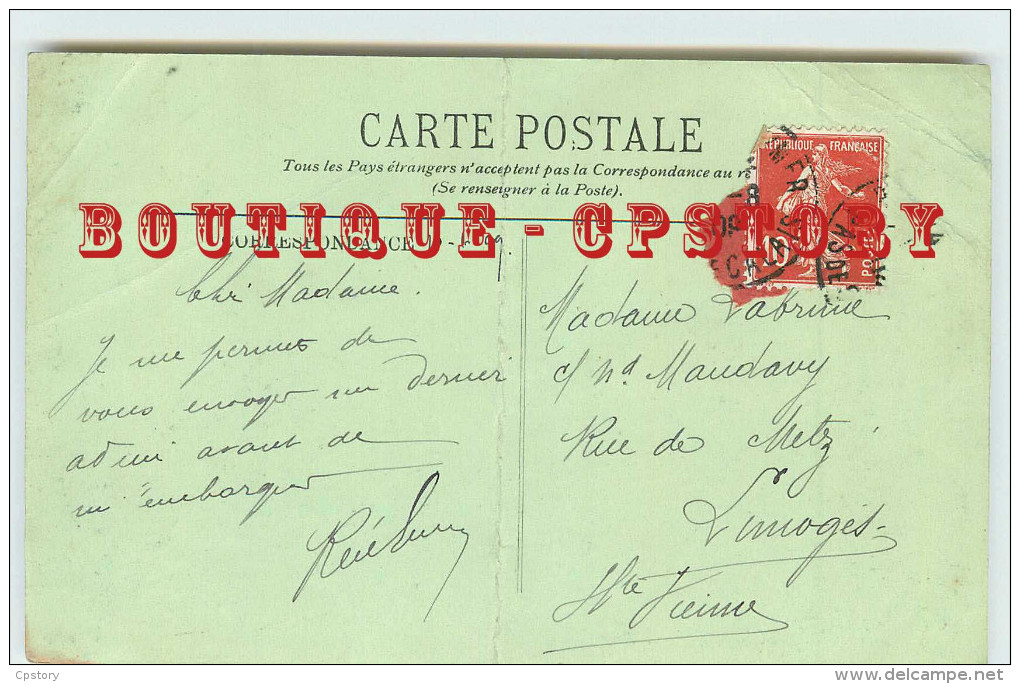 CARTE POSTALE
Tous les Pays étrangers n'acceptent pas la Correspondance au
(Se renseigner à la Poste).
RÉPUBLIQUE FRANÇAISE
BOUTIQUE - CPSTORY
CORRESPONDANCE
Madame.
Je me permet de
vous envoyer un dernier
avant de
m'embarquer
Madame Labrune
c/ Md Maudavy
Rue de Metz
Limoges
Hte Vienne
Cpstory
www.delcampe.net